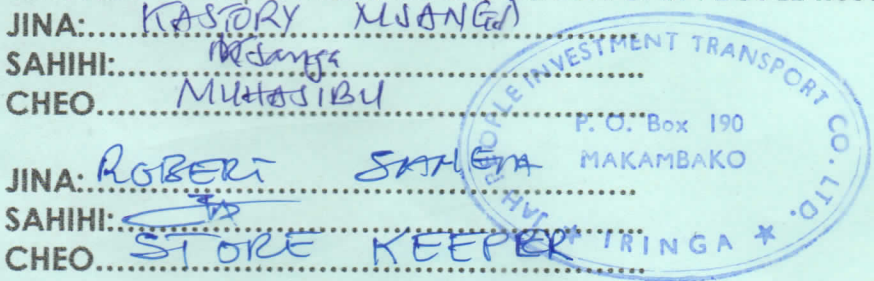 JINA: KASTORY MSANGA
SAHIHI: Msanga
CHEO MUHASIBU
JINA: ROBERT SANGA
SAHIHI:
CHEO STORE KEEPER
JAH PEOPLE INVESTMENT TRANSPORT CO. LTD.
P. O. Box 190
MAKAMBAKO
★ IRINGA ★